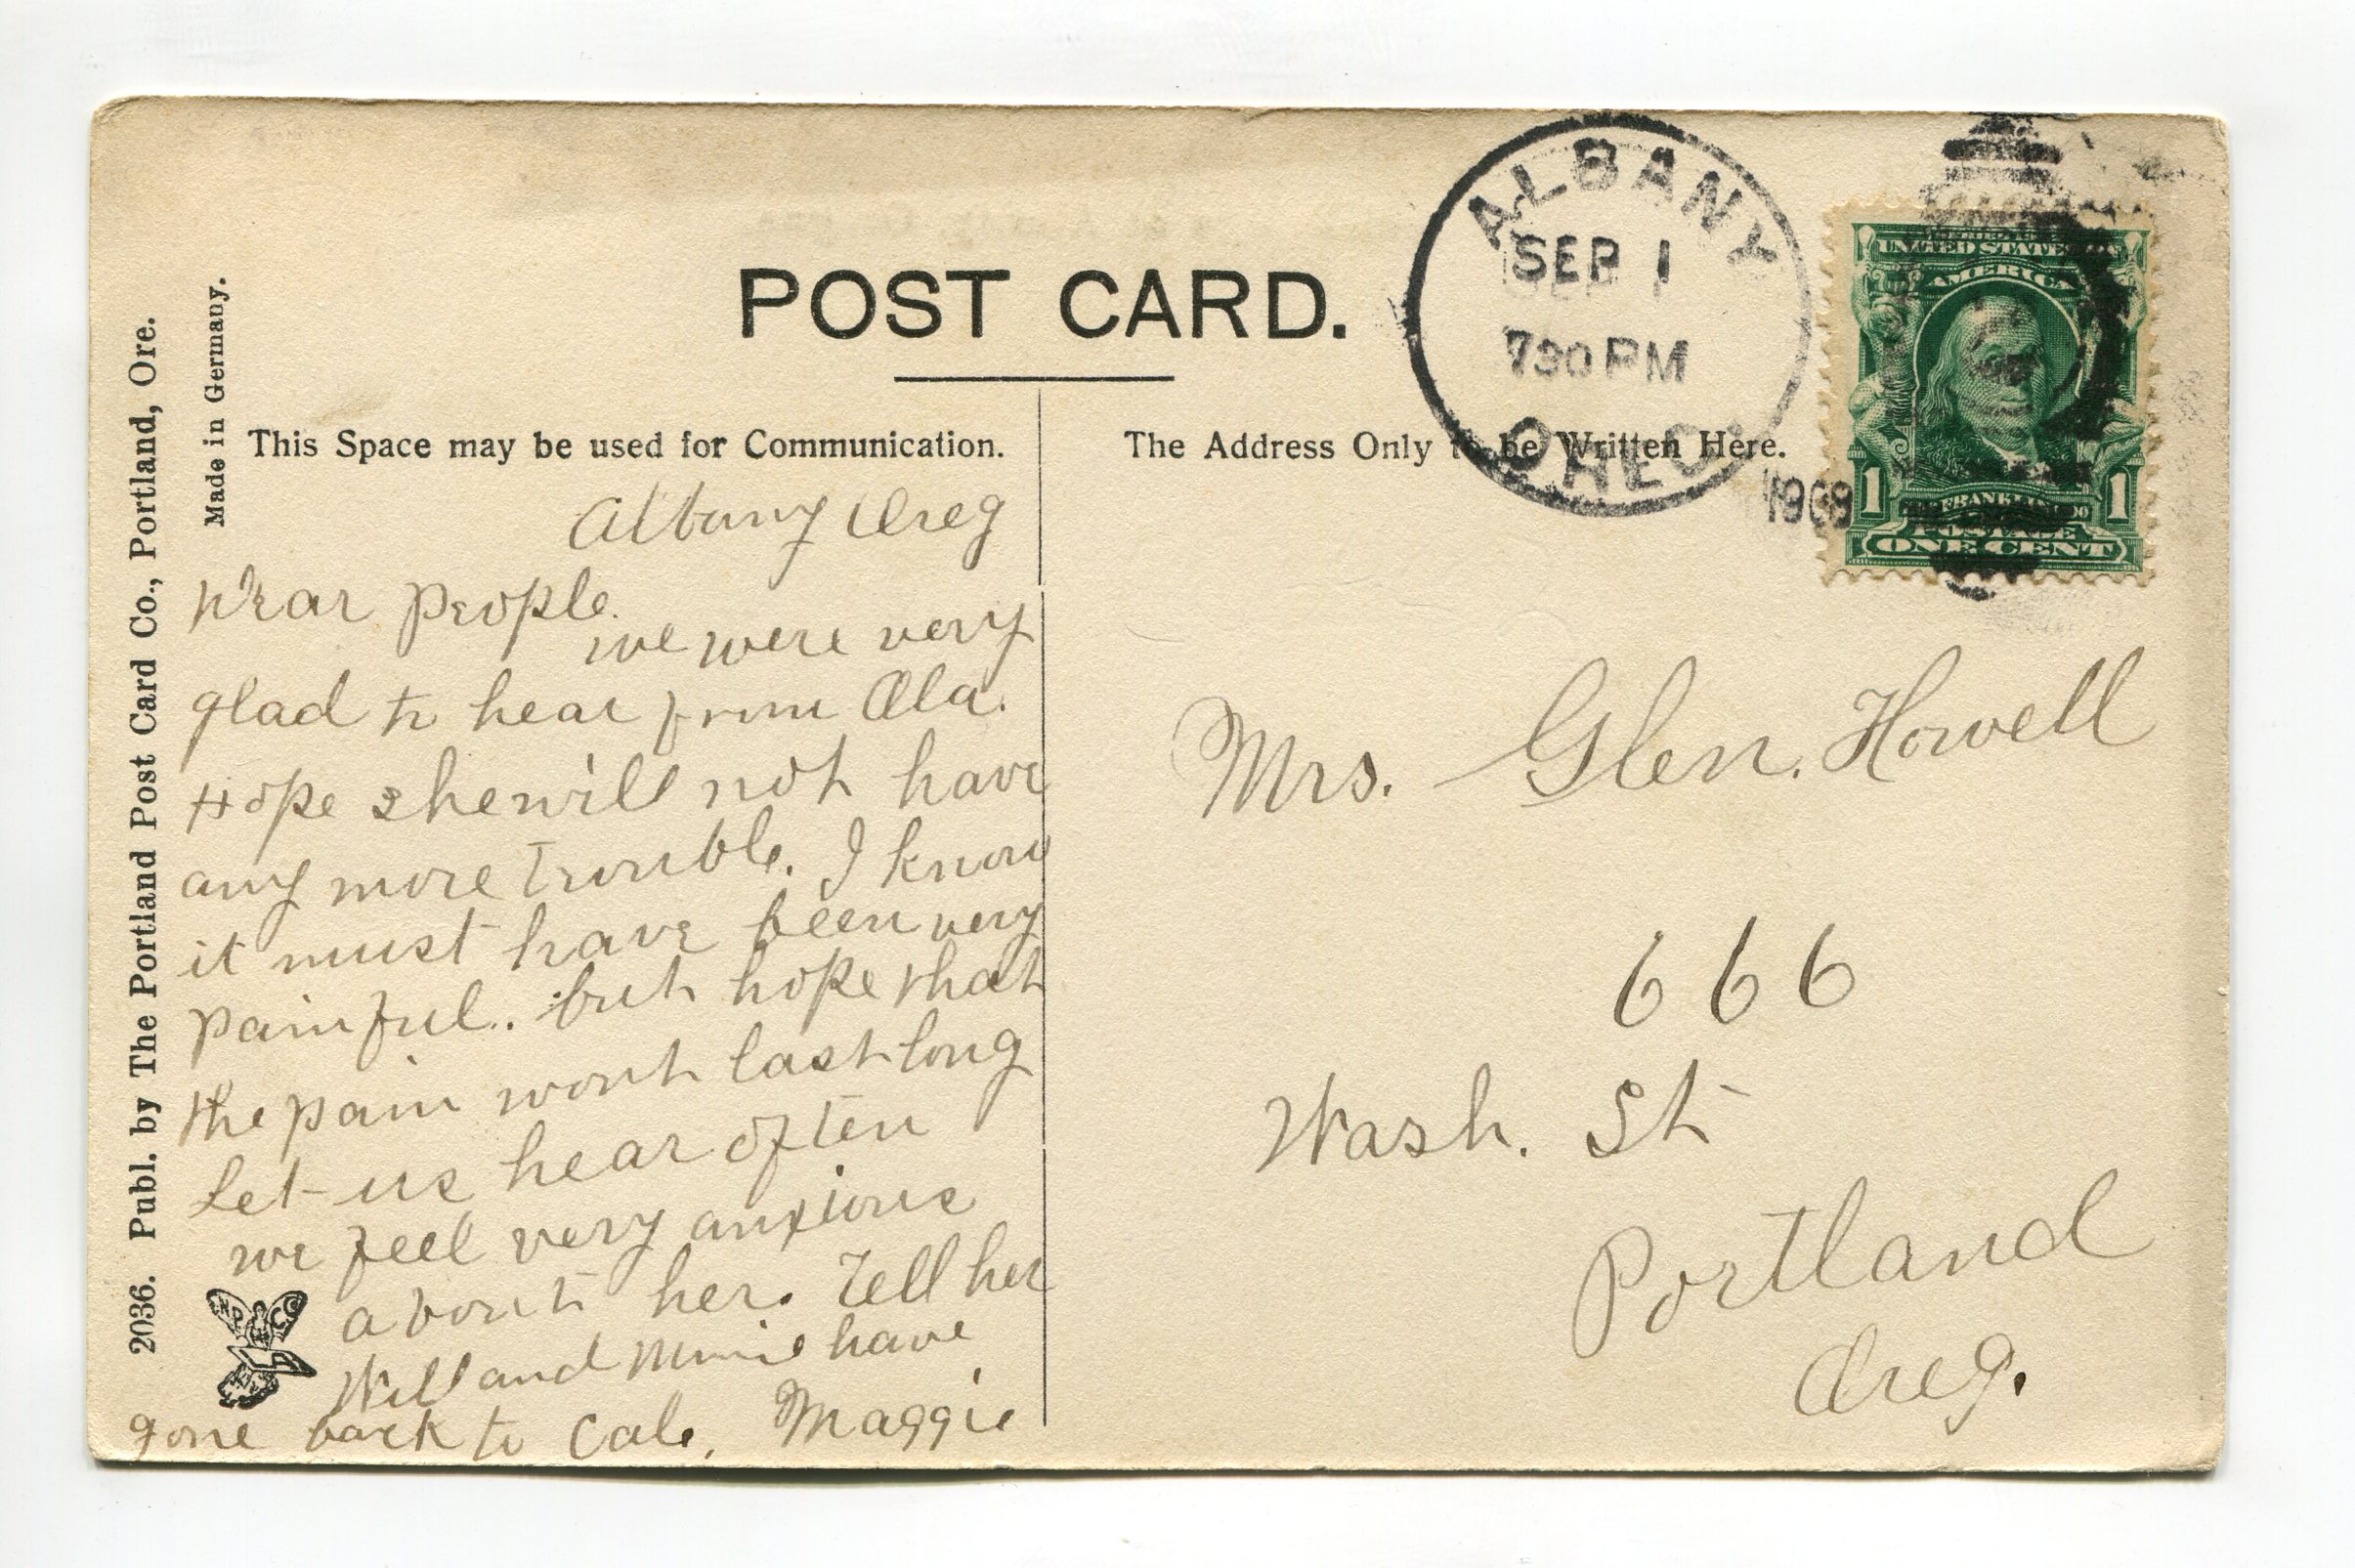 POST CARD.
Made in Germany.
2036. Publ. by The Portland Post Card Co., Portland, Ore.
This Space may be used for Communication.
The Address Only to be Written Here.
ALBANY
SEP 1
730 PM
OREG.
UNITED STATES OF
AMERICA
1 FRANKLIN 1
POSTAGE
ONE CENT
Albany Oreg
Dear People.
we were very
glad to hear from Ola.
Hope she will not have
any more trouble. I know
it must have been very
painful. but hope that
the pain wont last long
Let us hear often
we feel very anxious
about her. Tell her
Will and Minnie have
gone back to Cale. Maggie
Mrs. Glen. Howell
666
Wash. St
Portland
Oreg.